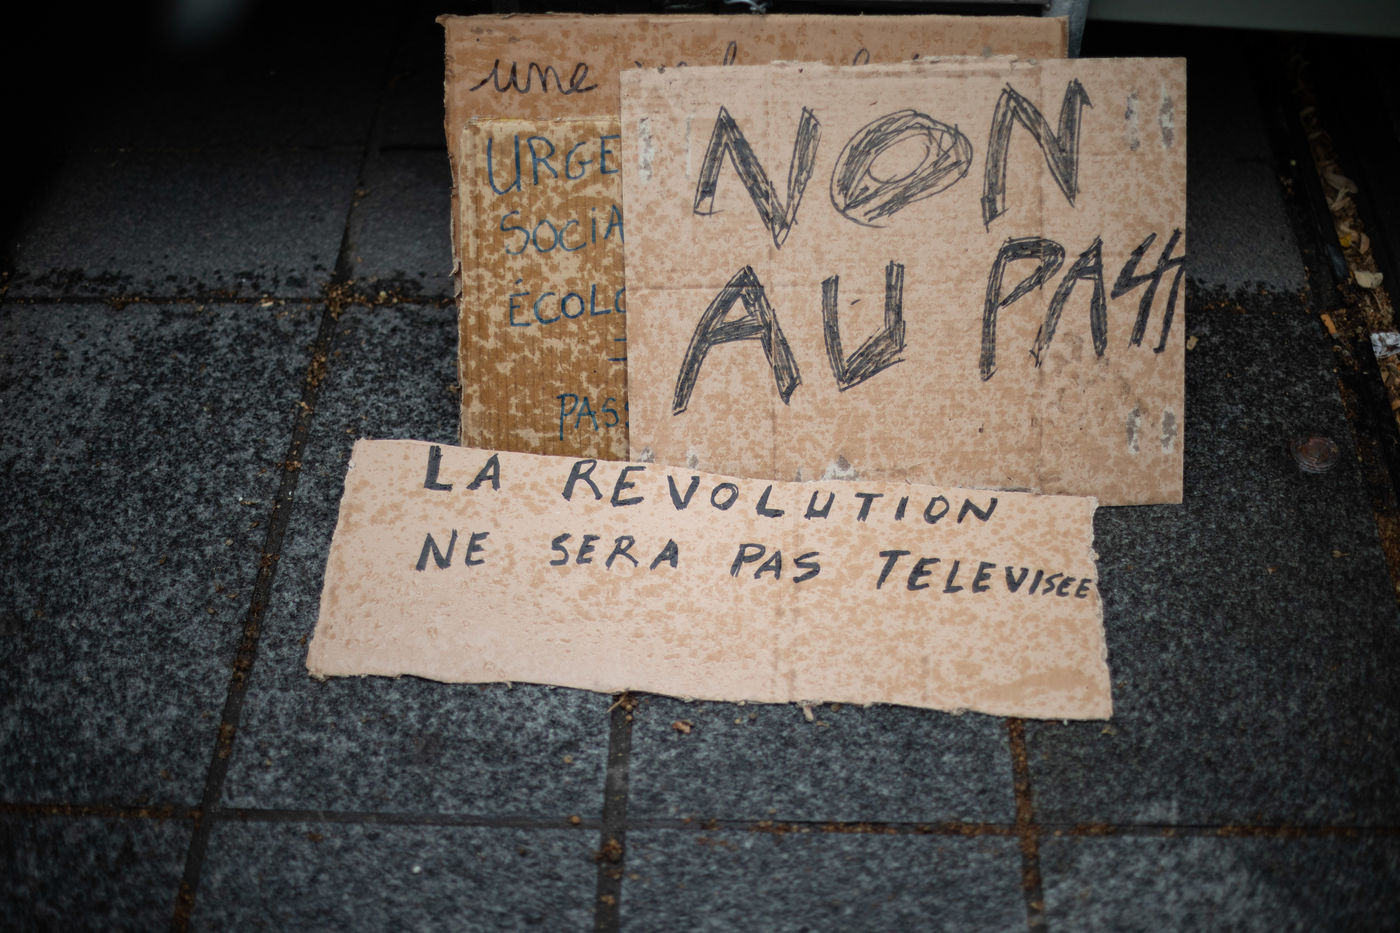 une
URGE
SOCIA
ÉCOLO
PAS
NON
AU PASS
LA REVOLUTION
NE SERA PAS TELEVISEE